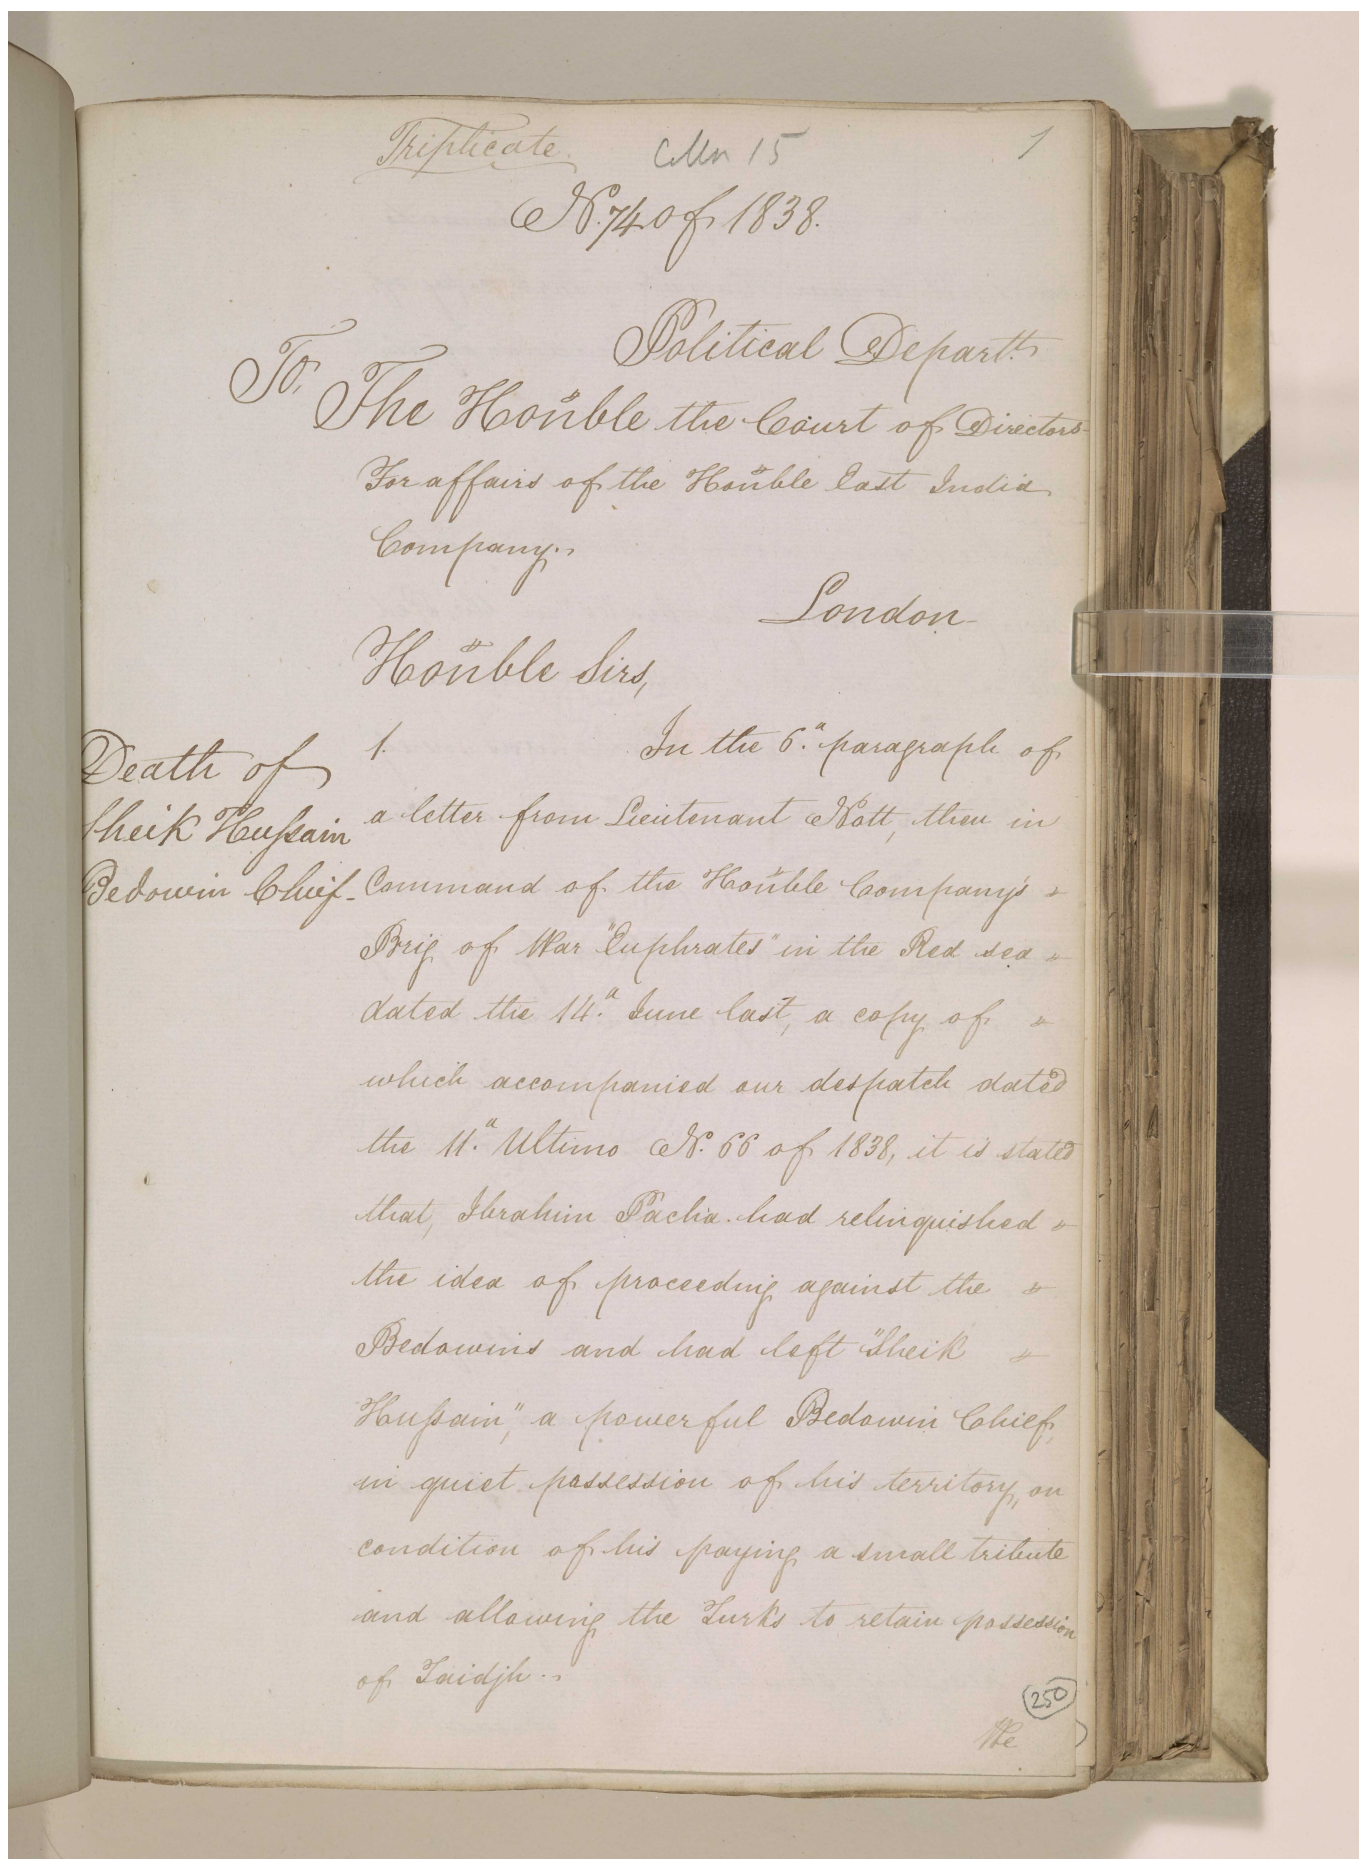 Triplicate
Colln 15
1
No. 74 of 1838.
Political Departt.
To,
The Honble the Court of Directors
For affairs of the Honble East India
Company.
London
Honble Sirs,
Death of
Sheik Hussain
Bedowin Chief
1. In the 6th. paragraph of
a letter from Lieutenant Nott, then in
Command of the Honble Company's "
Brig of War "Euphrates" in the Red sea "
dated the 14th. June last, a copy of "
which accompanied our despatch dated
the 11th. Ultimo No. 66 of 1838, it is stated
that, Ibrahim Pacha had relinquished "
the idea of proceeding against the "
Bedowins and had left "Sheik "
Hussain", a powerful Bedowin Chief,
in quiet possession of his territory, on
condition of his paying a small tribute
and allowing the Turks to retain possession
of Taidjh.
250
We